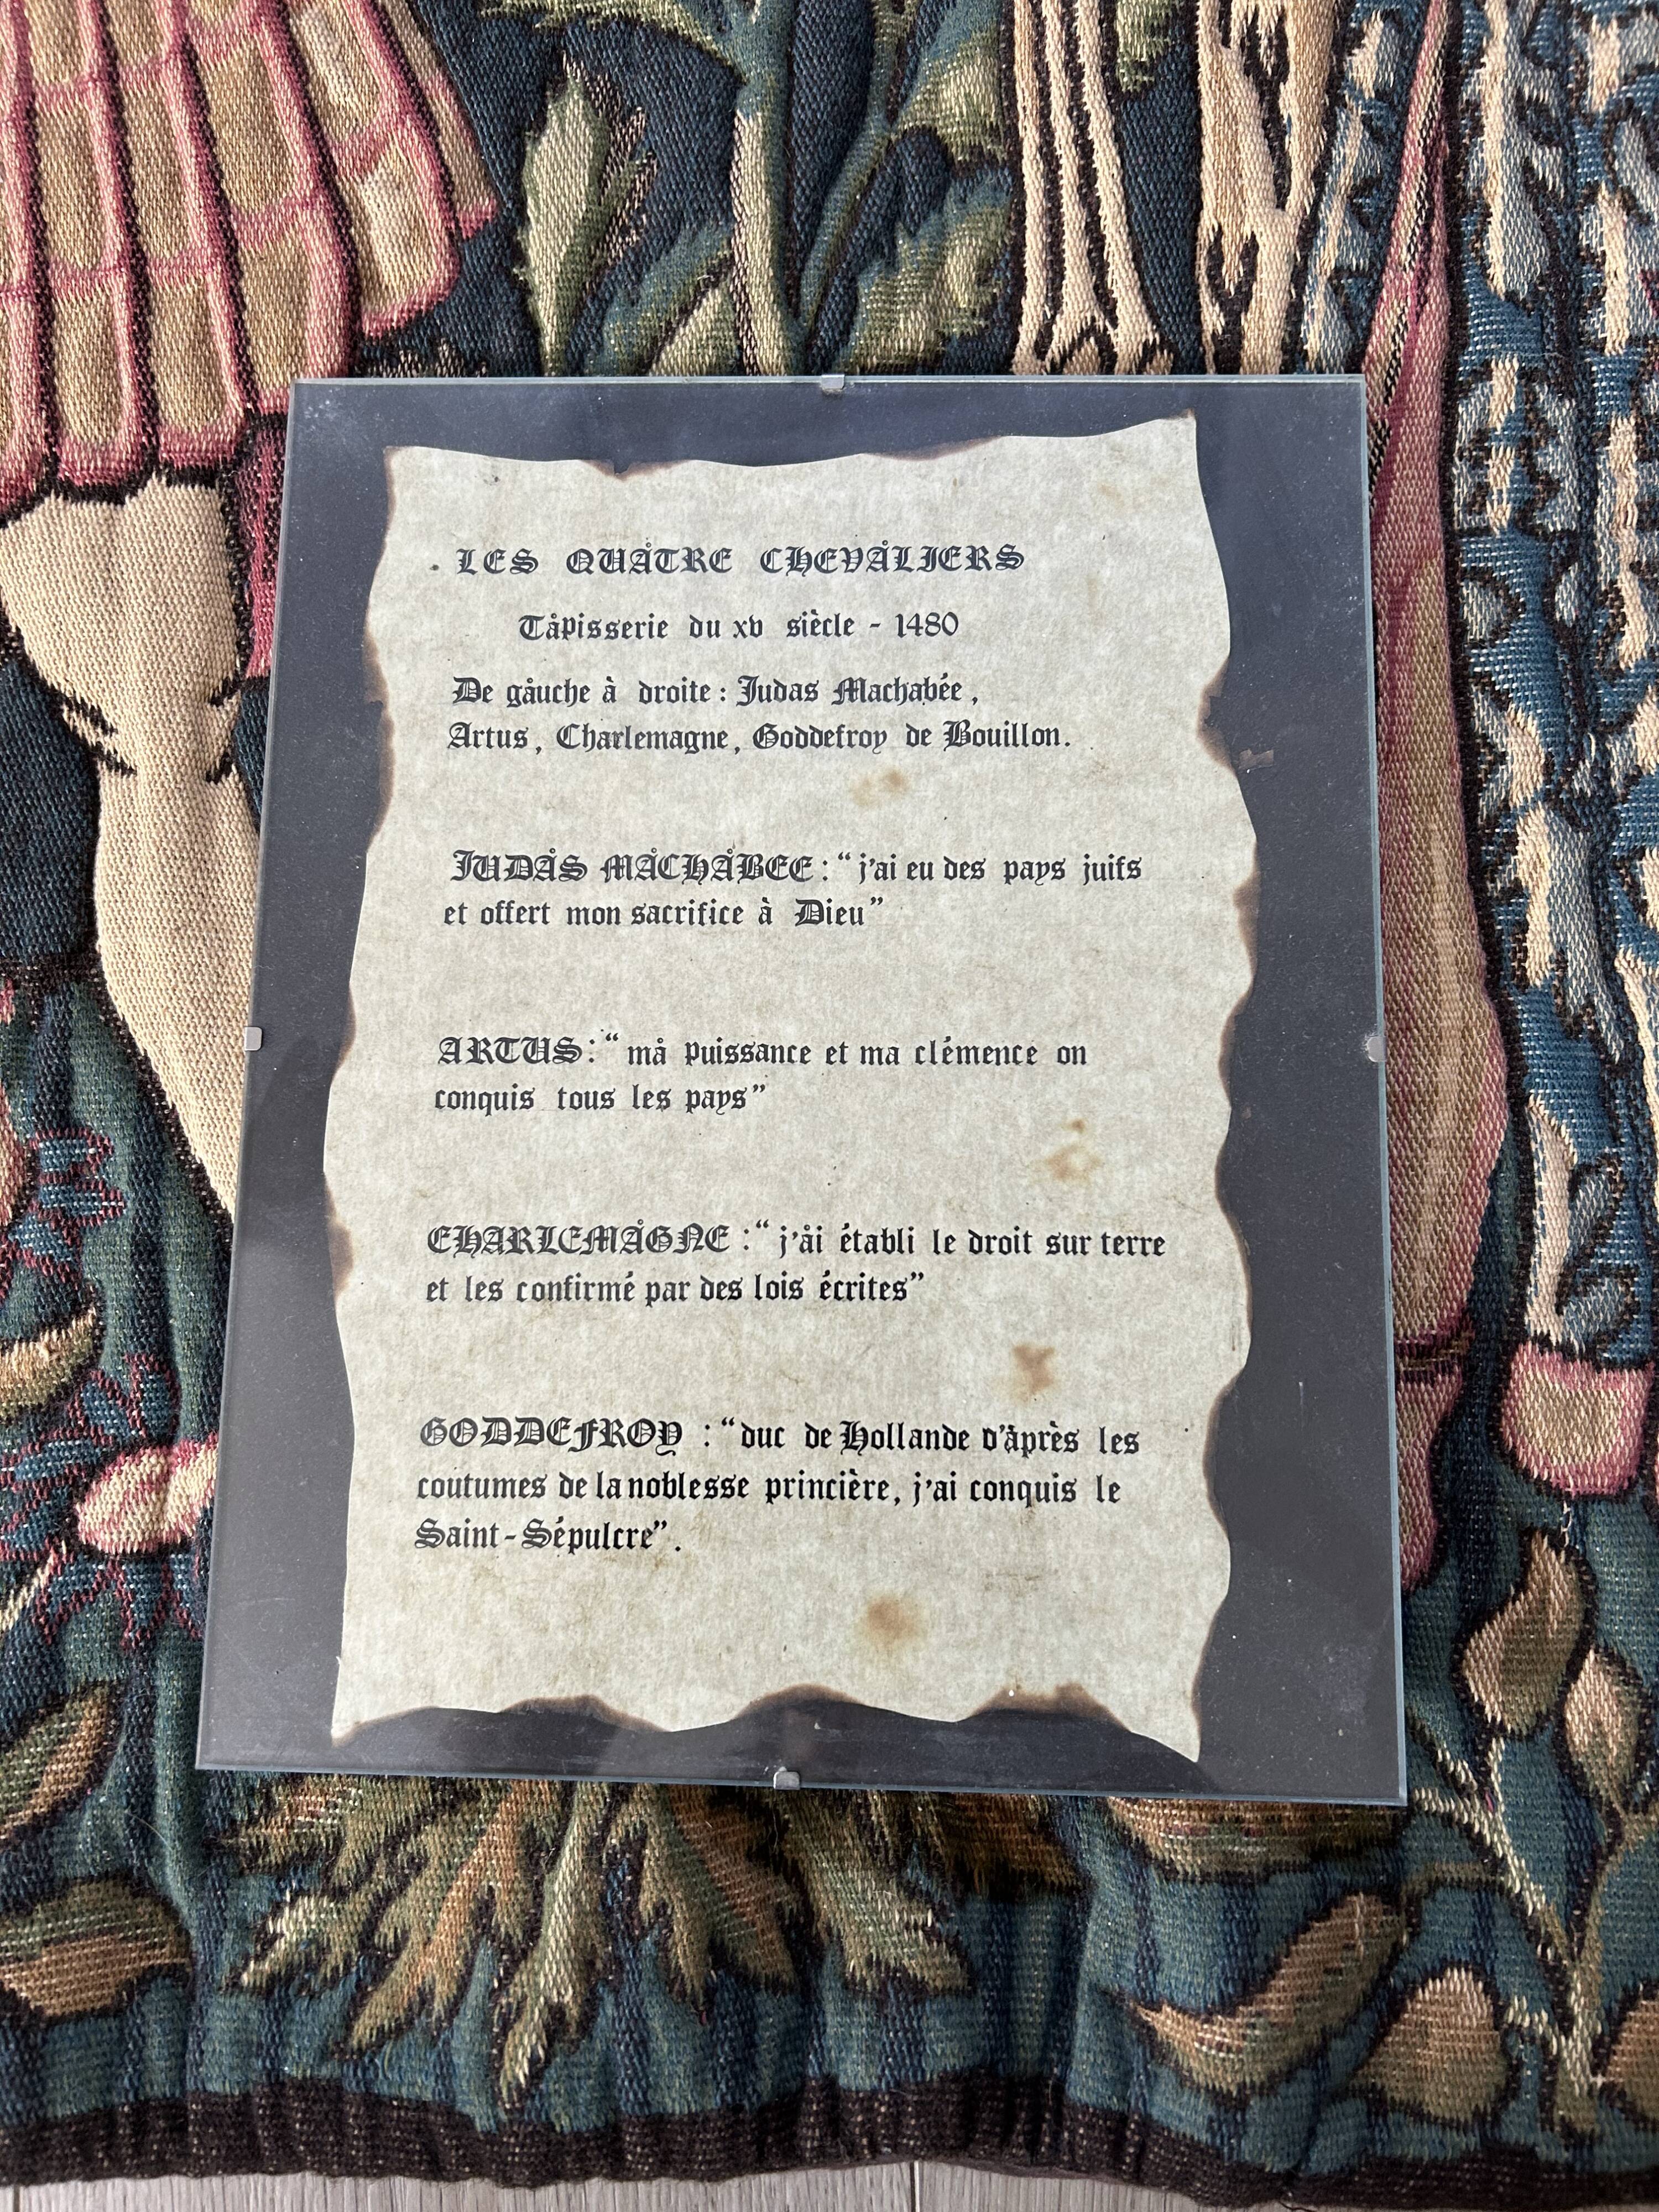 LES QUÅTRE CHEVÅLIERS
Tåpisserie du xv siècle - 1480
De gåuche à droite : Judas Machabée,
Artus, Charlemagne, Goddefroy de Bouillon.
JUDÅS MÅCHÅBEE : “j'ai eu des pays juifs
et offert mon sacrifice à Dieu”
ARTUS : “må puissance et ma clémence on
conquis tous les pays”
EHARLEMÅGNE : “j'åi établi le droit sur terre
et les confirmé par des lois écrites”
GODDEFROY : “duc de Hollande d'åprès les
coutumes de la noblesse princière, j'ai conquis le
Saint-Sépulcre”.